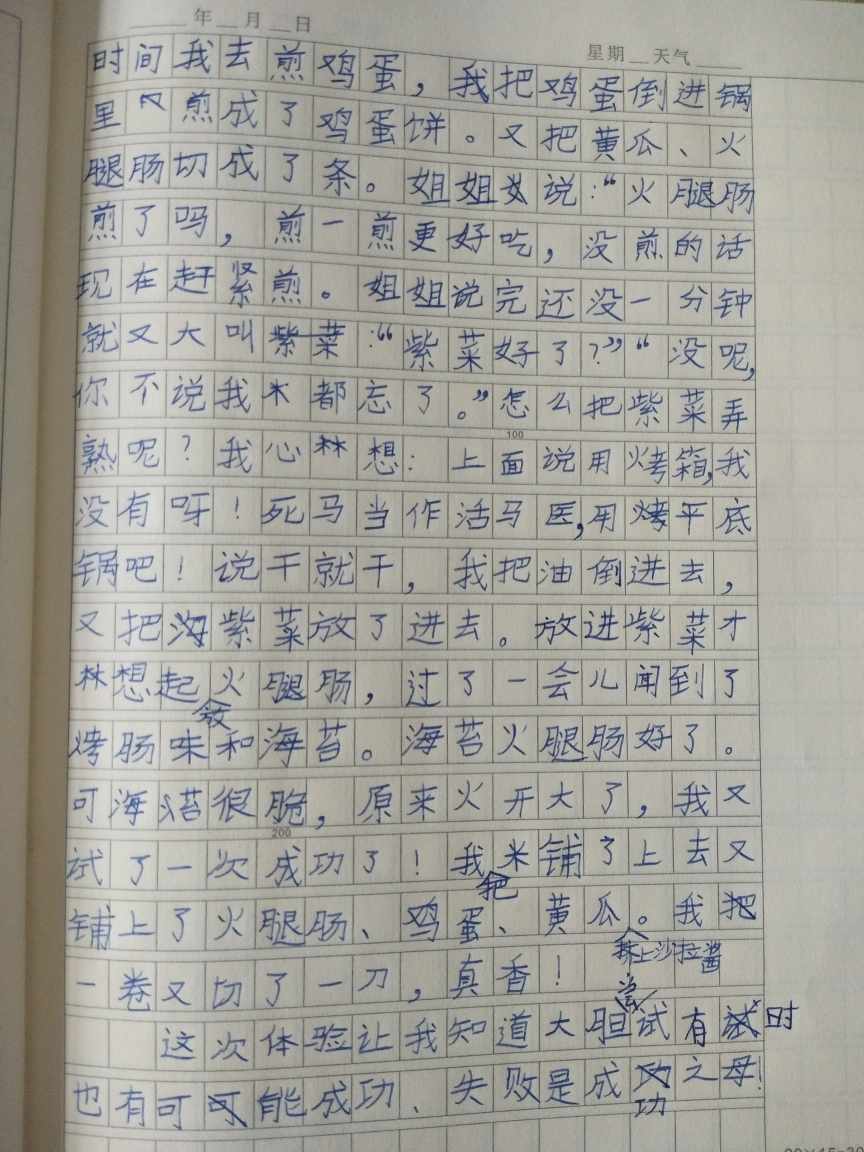 年 月 日
星期 天气
时间我去煎鸡蛋，我把鸡蛋倒进锅
里 煎成了鸡蛋饼。又把黄瓜、火
腿肠切成了条。姐姐说：“火腿肠
煎了吗，煎一煎更好吃，没煎的话
现在赶紧煎。姐姐说完还没一分钟
就又大叫：“紫菜好了？”“没呢，
你不说我都忘了。”怎么把紫菜弄
100
熟呢？我心想：上面说用烤箱，我
没有呀！死马当作活马医，用烤平底
锅吧！说干就干，我把油倒进去，
又把紫菜放了进去。放进紫菜才
想起火腿肠，过了一会儿闻到了
烤肠味和海苔。海苔火腿肠好了。
可海苔很脆，原来火开大了，我又
200
试了一次成功了！我把米铺了上去又
铺上了火腿肠、鸡蛋、黄瓜。我
抹上沙拉酱
一卷又切了一刀，真香！
这次体验让我知道大胆尝试有时
也有可能成功、失败是成功之母！